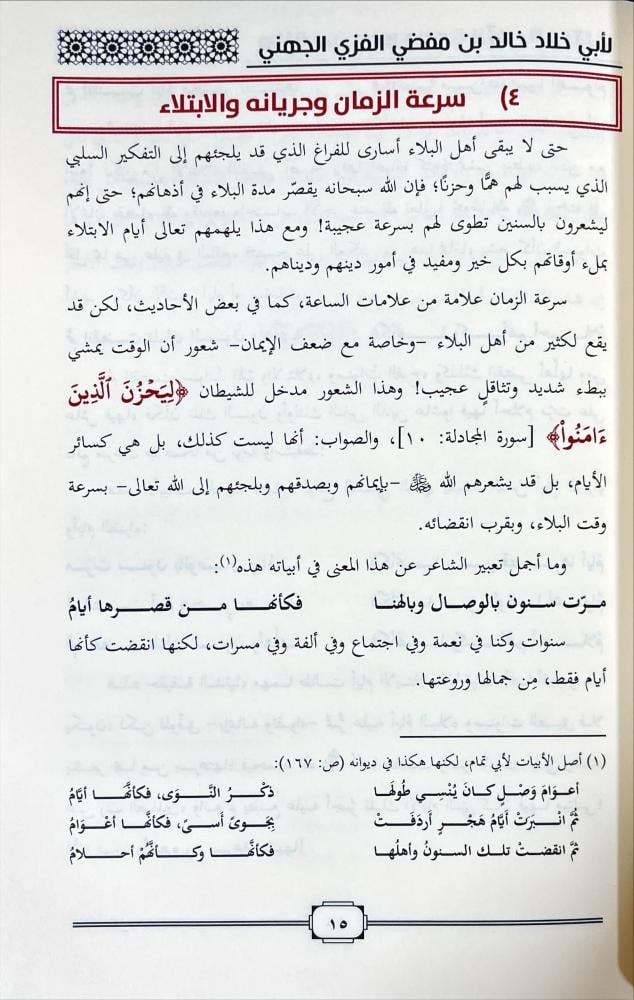 لأبي خلاد خالد بن مفضي الفزي الجهني
٤) سرعة الزمان وجريانه والابتلاء
حتى لا يبقى أهل البلاء أسارى للفراغ الذي قد يلجئهم إلى التفكير السلبي
الذي يسبب لهم همًّا وحزنًا؛ فإن الله سبحانه يقصّر مدة البلاء في أذهانهم؛ حتى إنهم
ليشعرون بالسنين تطوى لهم بسرعة عجيبة! ومع هذا يلهمهم تعالى أيام الابتلاء
بملء أوقاتهم بكل خير ومفيد في أمور دينهم ودنياهم.
سرعة الزمان علامة من علامات الساعة، كما في بعض الأحاديث، لكن قد
يقع لكثير من أهل البلاء -وخاصة مع ضعف الإيمان- شعور أن الوقت يمشي
ببطء شديد وتثاقلٍ عجيب! وهذا الشعور مدخل للشيطان ﴿لِيَحْزُنَ ٱلَّذِينَ
ءَامَنُوا۟﴾ [سورة المجادلة: ١٠]، والصواب: أنها ليست كذلك، بل هي كسائر
الأيام، بل قد يشعرهم الله ﷻ -بإيمانهم وبصدقهم وبلجئهم إلى الله تعالى- بسرعة
وقت البلاء، وبقرب انقضائه.
وما أجمل تعبير الشاعر عن هذا المعنى في أبياته هذه(١):
مرّت سنون بالوصال وبالهنا فكأنها من قصرها أيامُ
سنوات وكنا في نعمة وفي اجتماع وفي ألفة وفي مسرات، لكنها انقضت كأنها
أيام فقط، مِن جمالها وروعتها.
(١) أصل الأبيات لأبي تمام، لكنها هكذا في ديوانه (ص: ١٦٧):
أعوَامَ وَصْلٍ كانَ يُنْسِي طُولَها ذكْرُ النَّوَى، فكأنَّها أيَّامُ
ثُمَّ انْبَرَتْ أيَّامُ هَجْرٍ أردَفَتْ بِجَوىً أسىً، فكأنَّها أعْوَامُ
ثمَّ انقضتْ تلك السنونُ وأهلُها فكأنَّها وكأنَّهُمْ أحلامُ
١٥